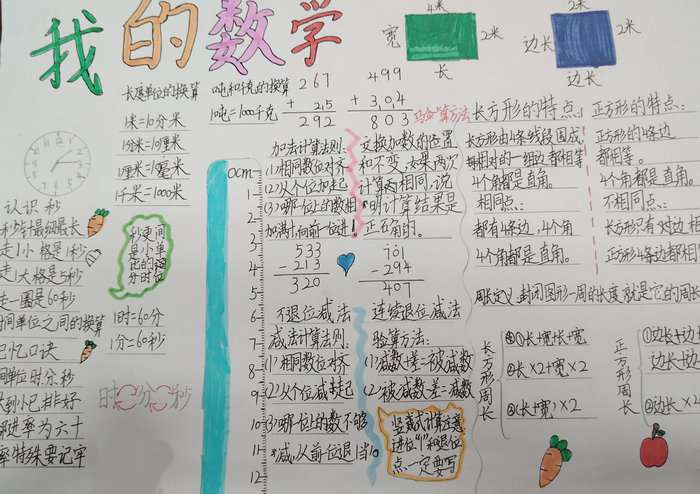 我的数学
4米
宽
2米
长
2米
边长
2米
边长
长度单位的换算
1米=10分米
1分米=10厘米
1厘米=10毫米
1千米=1000米
吨和千克的换算
1吨=1000千克
267
+ 2,5
292
499
+ 3,0,4
803
验算方法
加法计算法则:
(1)相同数位对齐
(2)从个位加起
(3)哪一位上的数相
加满十,向前一位进1
交换加数的位置
和不变,如果两次
计算两相同,说
明计算结果是
正确的。
长方形的特点:
长方形由4条线段围成
每相对的一组边都相等
4个角都是直角。
相同点:
都有4条边,4个角
4个角都是直角。
正方形的特点:
正方形的4条边
都相等。
4个角都是直角。
不相同点:
长方形只有对边相
正方形4条边都相
周长定义:封闭图形一周的长度就是它的周长
认识秒
秒针最细最长
走1小格是1秒
走1大格是5秒
走一圈是60秒
时间单位之间的换算
记忆口诀
间单位时分秒
大到小已排好
邻进率为六十
率特殊要记牢
秒更间
是小单
记的位
分时
1时=60分
1分=60秒
时 分 秒
0cm
1
2
3
4
5
6
7
8
9
10
11
12
533
- 213
320
701
- 294
407
不退位减法
减法计算法则:
(1)相同数位对齐
(2)从个位减起
(3)哪一位上的数不够
减,从前一位退1当10
连续退位减法
验算方法:
(1)减数+差=被减数
(2)被减数-差=减数
竖式计算注意
进位“1”和退位
点一定要写
长方形周长
①长+宽+长+宽
②长×2+宽×2
③(长+宽)×2
正方形周长
①边长+边长
边长+边
②边长×